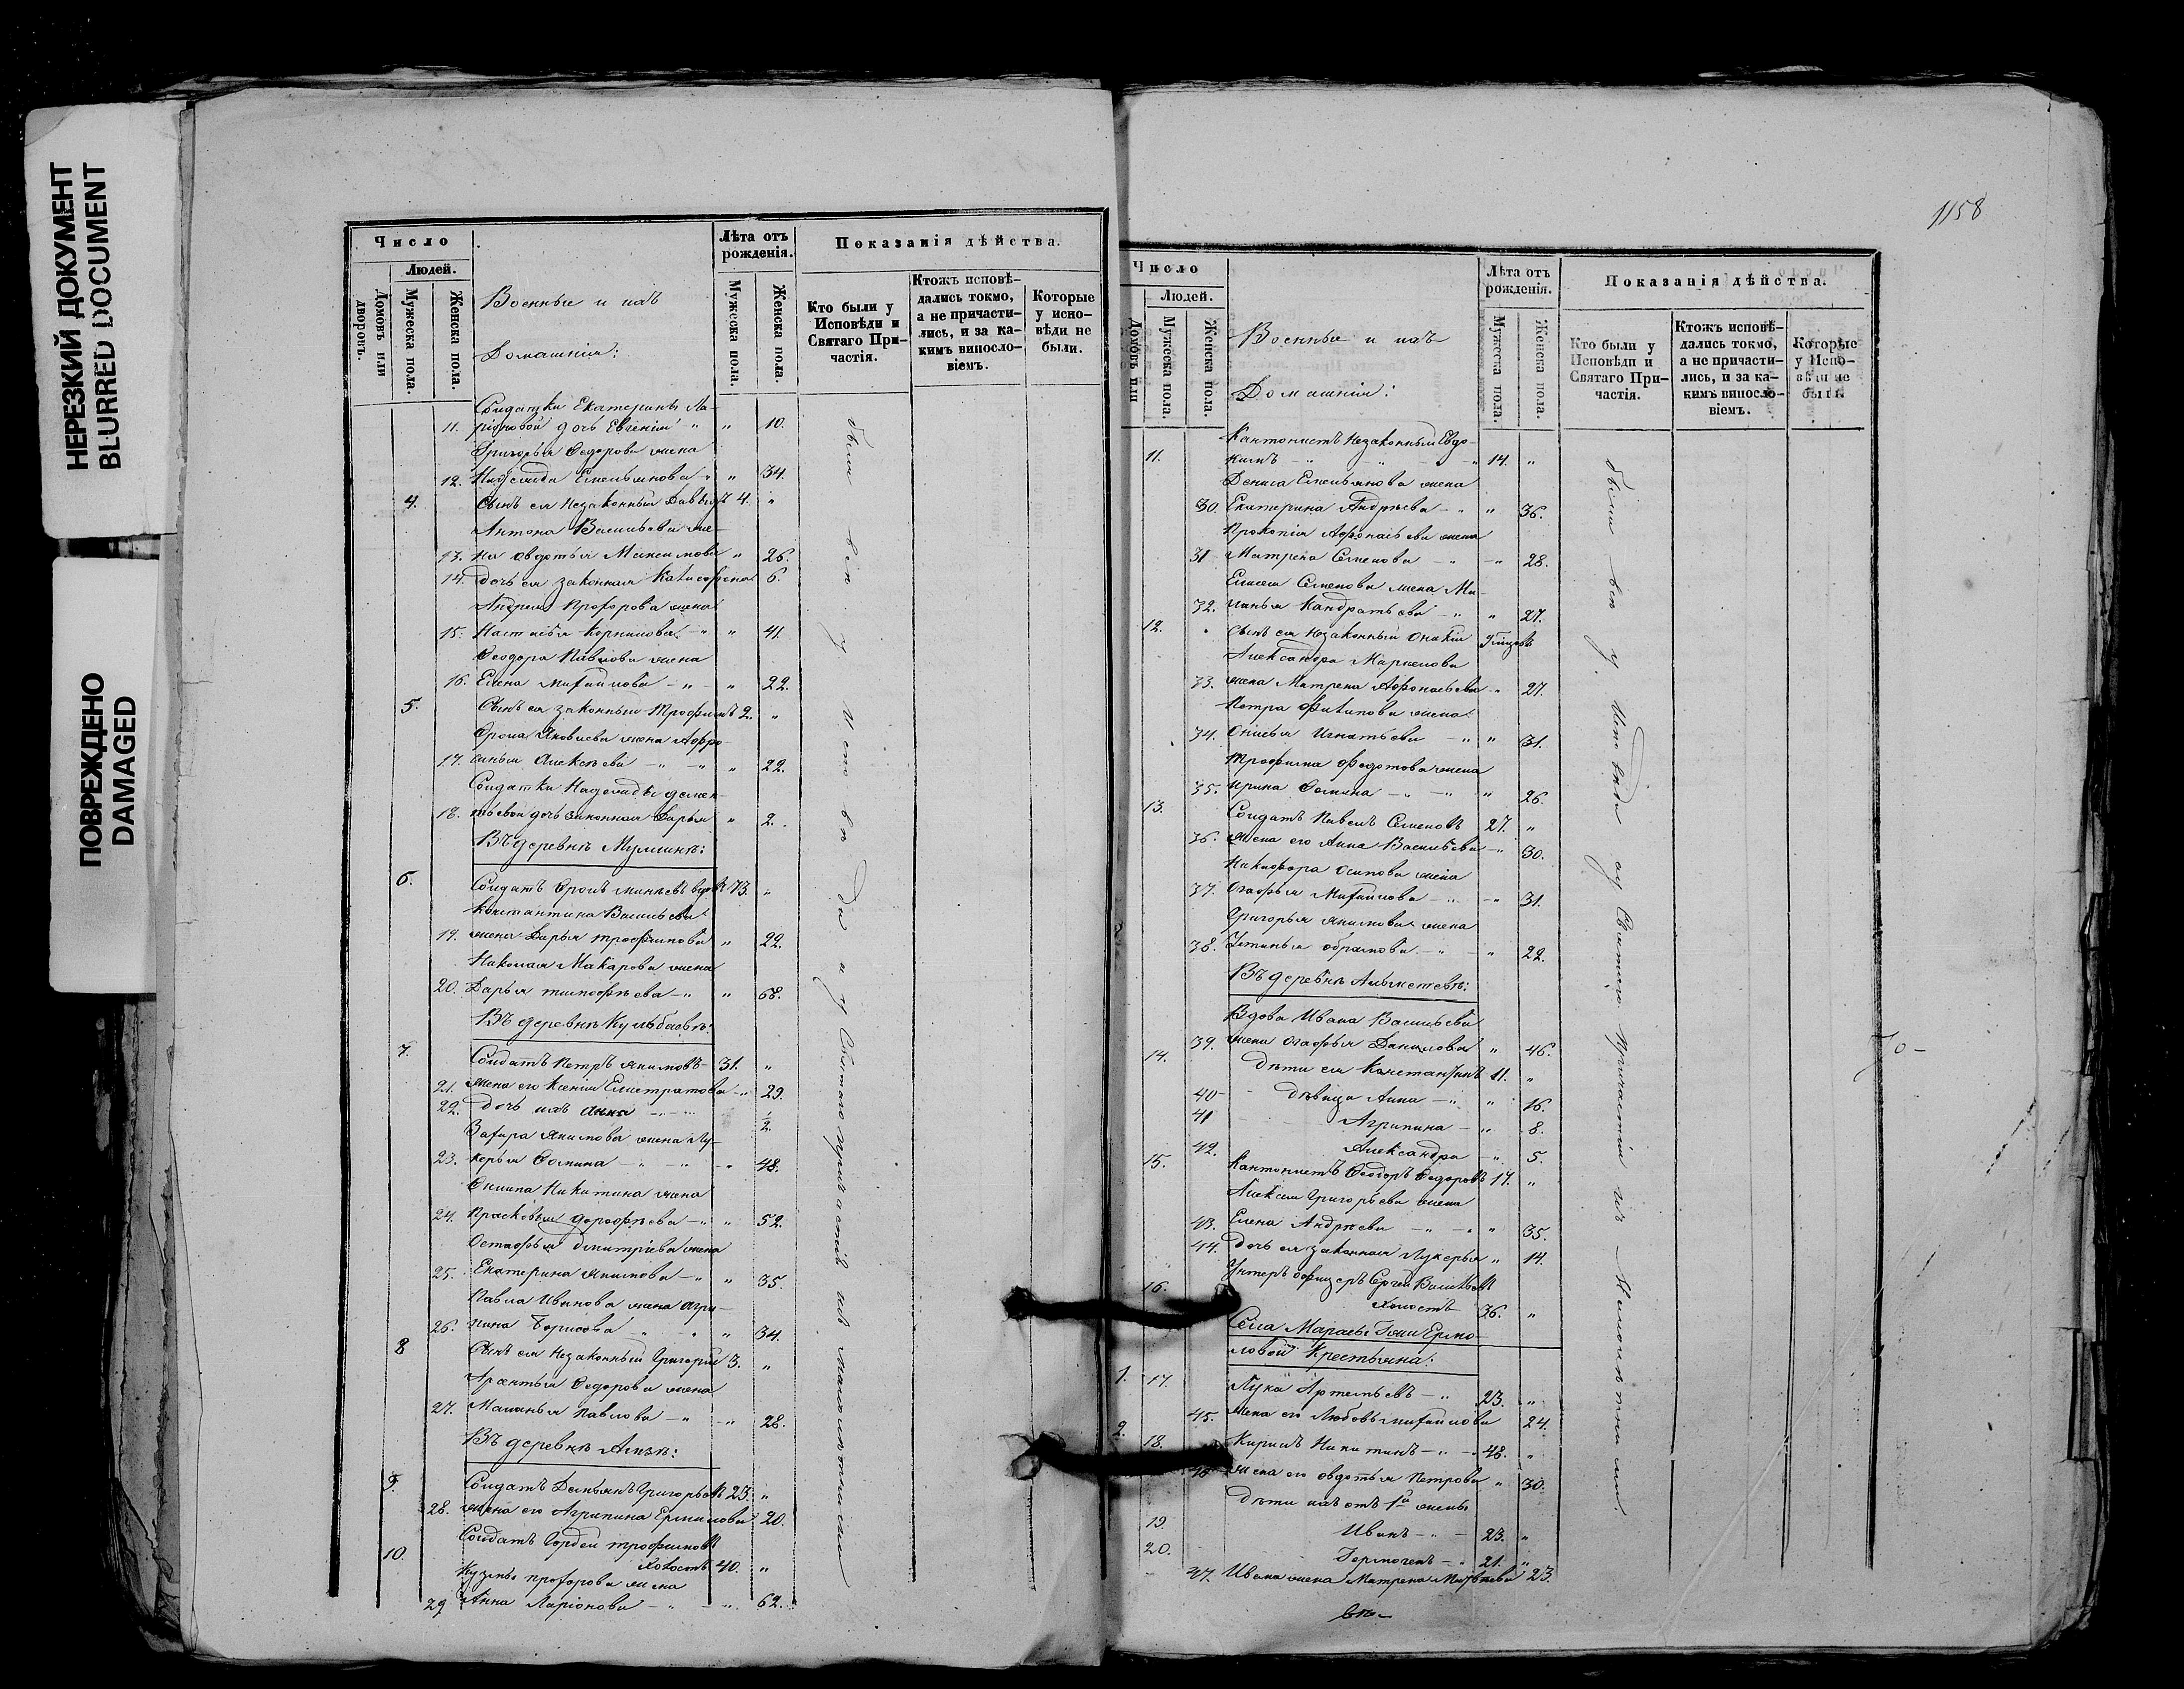 НЕРЕЗКИЙ ДОКУМЕНТ
BLURRED DOCUMENT
ПОВРЕЖДЕНО
DAMAGED
Число
Людей.
Домовъ или дворовъ.
Мужеска пола.
Женска пола.
Военные и ихъ
Домашнія:
Лѣта отъ рожденія.
Мужеска пола.
Женска пола.
Показанія дѣйства.
Кто были у Исповѣди и Святаго При-частія.
Ктожъ исповѣ-дались токмо, а не причасти-лись, и за ка-кимъ винносло-віемъ.
Которые у испо-вѣди не были.
Солдатки Екатерины Ла-
11. ріоновой дочь Евгенія " " 10.
Григорья Федорова жена
12. Надежда Емельянова " " 34.
4. Сынъ ея незаконный Давыдъ 4. "
Антона Васильева же-
13. на Овдотья Максимова " 26.
14. дочь ея законная 6.
Андрея Прохорова жена
15. Настасья Корнилова " " 41.
Феодора Павлова жена
16. Елена Михайлова " " 22.
5. Сынъ ея законный Трофимъ 2. "
Фрола Яковлева жена Афро-
17. синья Алексѣева " " 22.
Солдатки Надежды Демен-
18. тьевой дочь законная Дарья " 2.
Въ деревнѣ
6. Солдатъ Фролъ вдовъ 73. "
Константина Васильева
19. жена Дарья Трофимова " 22.
Николая Макарова жена
20. Дарья Тимофѣева " " 68.
Въ деревнѣ Кульбаевѣ:
7. Солдатъ Петръ Якимовъ 31. "
21. жена его Ксенія Елистратова " 29.
22. дочь ихъ Анна 1/2
Захара Якимова жена Лу-
23. керья Фомина " " 48.
Осипа Никитина жена
24. Прасковья Дорофѣева " " 52.
Остафья Дмитріева жена
25. Екатерина Якимова " " 35.
Павла Иванова жена Агри-
26. пина Борисова " " " 34.
8 Сынъ ея незаконный Григорій 3. "
Федорова жена
27. Маланья Павлова " " 28.
Въ деревнѣ
9. Солдатъ Демьянъ Григорьевъ 23. "
28. жена его Агрипина Ермилова 20.
10. Солдатъ Гордей Трофимовъ
Холостъ 40. "
Кузьмы Прохорова жена
29 Анна Ларіонова " " 62.
были всѣ у Исповѣди и у Святаго причастія съ малолѣтними
1158
Число
Людей.
Домовъ или
Мужеска пола.
Женска пола.
Военные и ихъ
Домашнія:
Лѣта отъ рожденія.
Мужеска пола.
Женска пола.
Показанія дѣйства.
Кто были у Исповѣди и Святаго При-частія.
Ктожъ исповѣ-дались токмо, а не причасти-лись, и за ка-кимъ винносло-віемъ.
Которые у Испо-вѣди не были.
Кантонистъ незаконный Евдо-
11. кимъ " " 14. "
Дениса Емельянова жена
30. Екатерина Андрѣева " " 36.
Прокопія Афонасьева жена
31 Матрена Семенова " 28.
Елисея Семенова жена Ма-
32. ланья Кандратьева " " 27.
12. Сынъ ея незаконный
Александра Маркелова
33. жена Матрена Афонасьева " 27.
Петра Филипова жена
34. Игнатьева " " 31.
Трофима Федотова жена
35. Ирина Фомина " " " 26.
13. Солдатъ Павелъ Семеновъ 27. "
36. жена его Анна Васильева " 30.
Никифора Осипова жена
37. Огафья Михайлова " " 31.
Григорья Якимова жена
38. Устинья Обрамова " " 22.
Въ деревнѣ Альметевѣ:
Вдова Ивана Васильева
39. жена Огафья Данилова " 46.
14. дѣти ея Константинъ 11. "
40 дѣвица Анна " " 16.
41 Агрипина " 8.
42. Александра " 5.
15. Кантонистъ Феодоръ Федоровъ 17. "
Алексея Григорьева жена
43. Елена Андрѣева " " " 35.
44. дочь ея законная Лукерья " 14.
16. Унтеръ офицеръ Сергей Васильевъ
Холостъ 36. "
Села Мараевы Ермо-
ловой Крестьяна:
1. 17. Лука Артемьевъ " 23. "
45. жена его Любовь Михайлова 24.
2. 18. Кирилъ Никитинъ " 48. "
46 жена его Овдотья Петрова " 30.
дѣти ихъ отъ 1й жены
19. Иванъ " 23. "
20. Гермогенъ " 21. "
47. Ивана жена Матрена Матвѣева 23.
были всѣ у Исповѣди и у Святаго причастія съ Малолѣтними